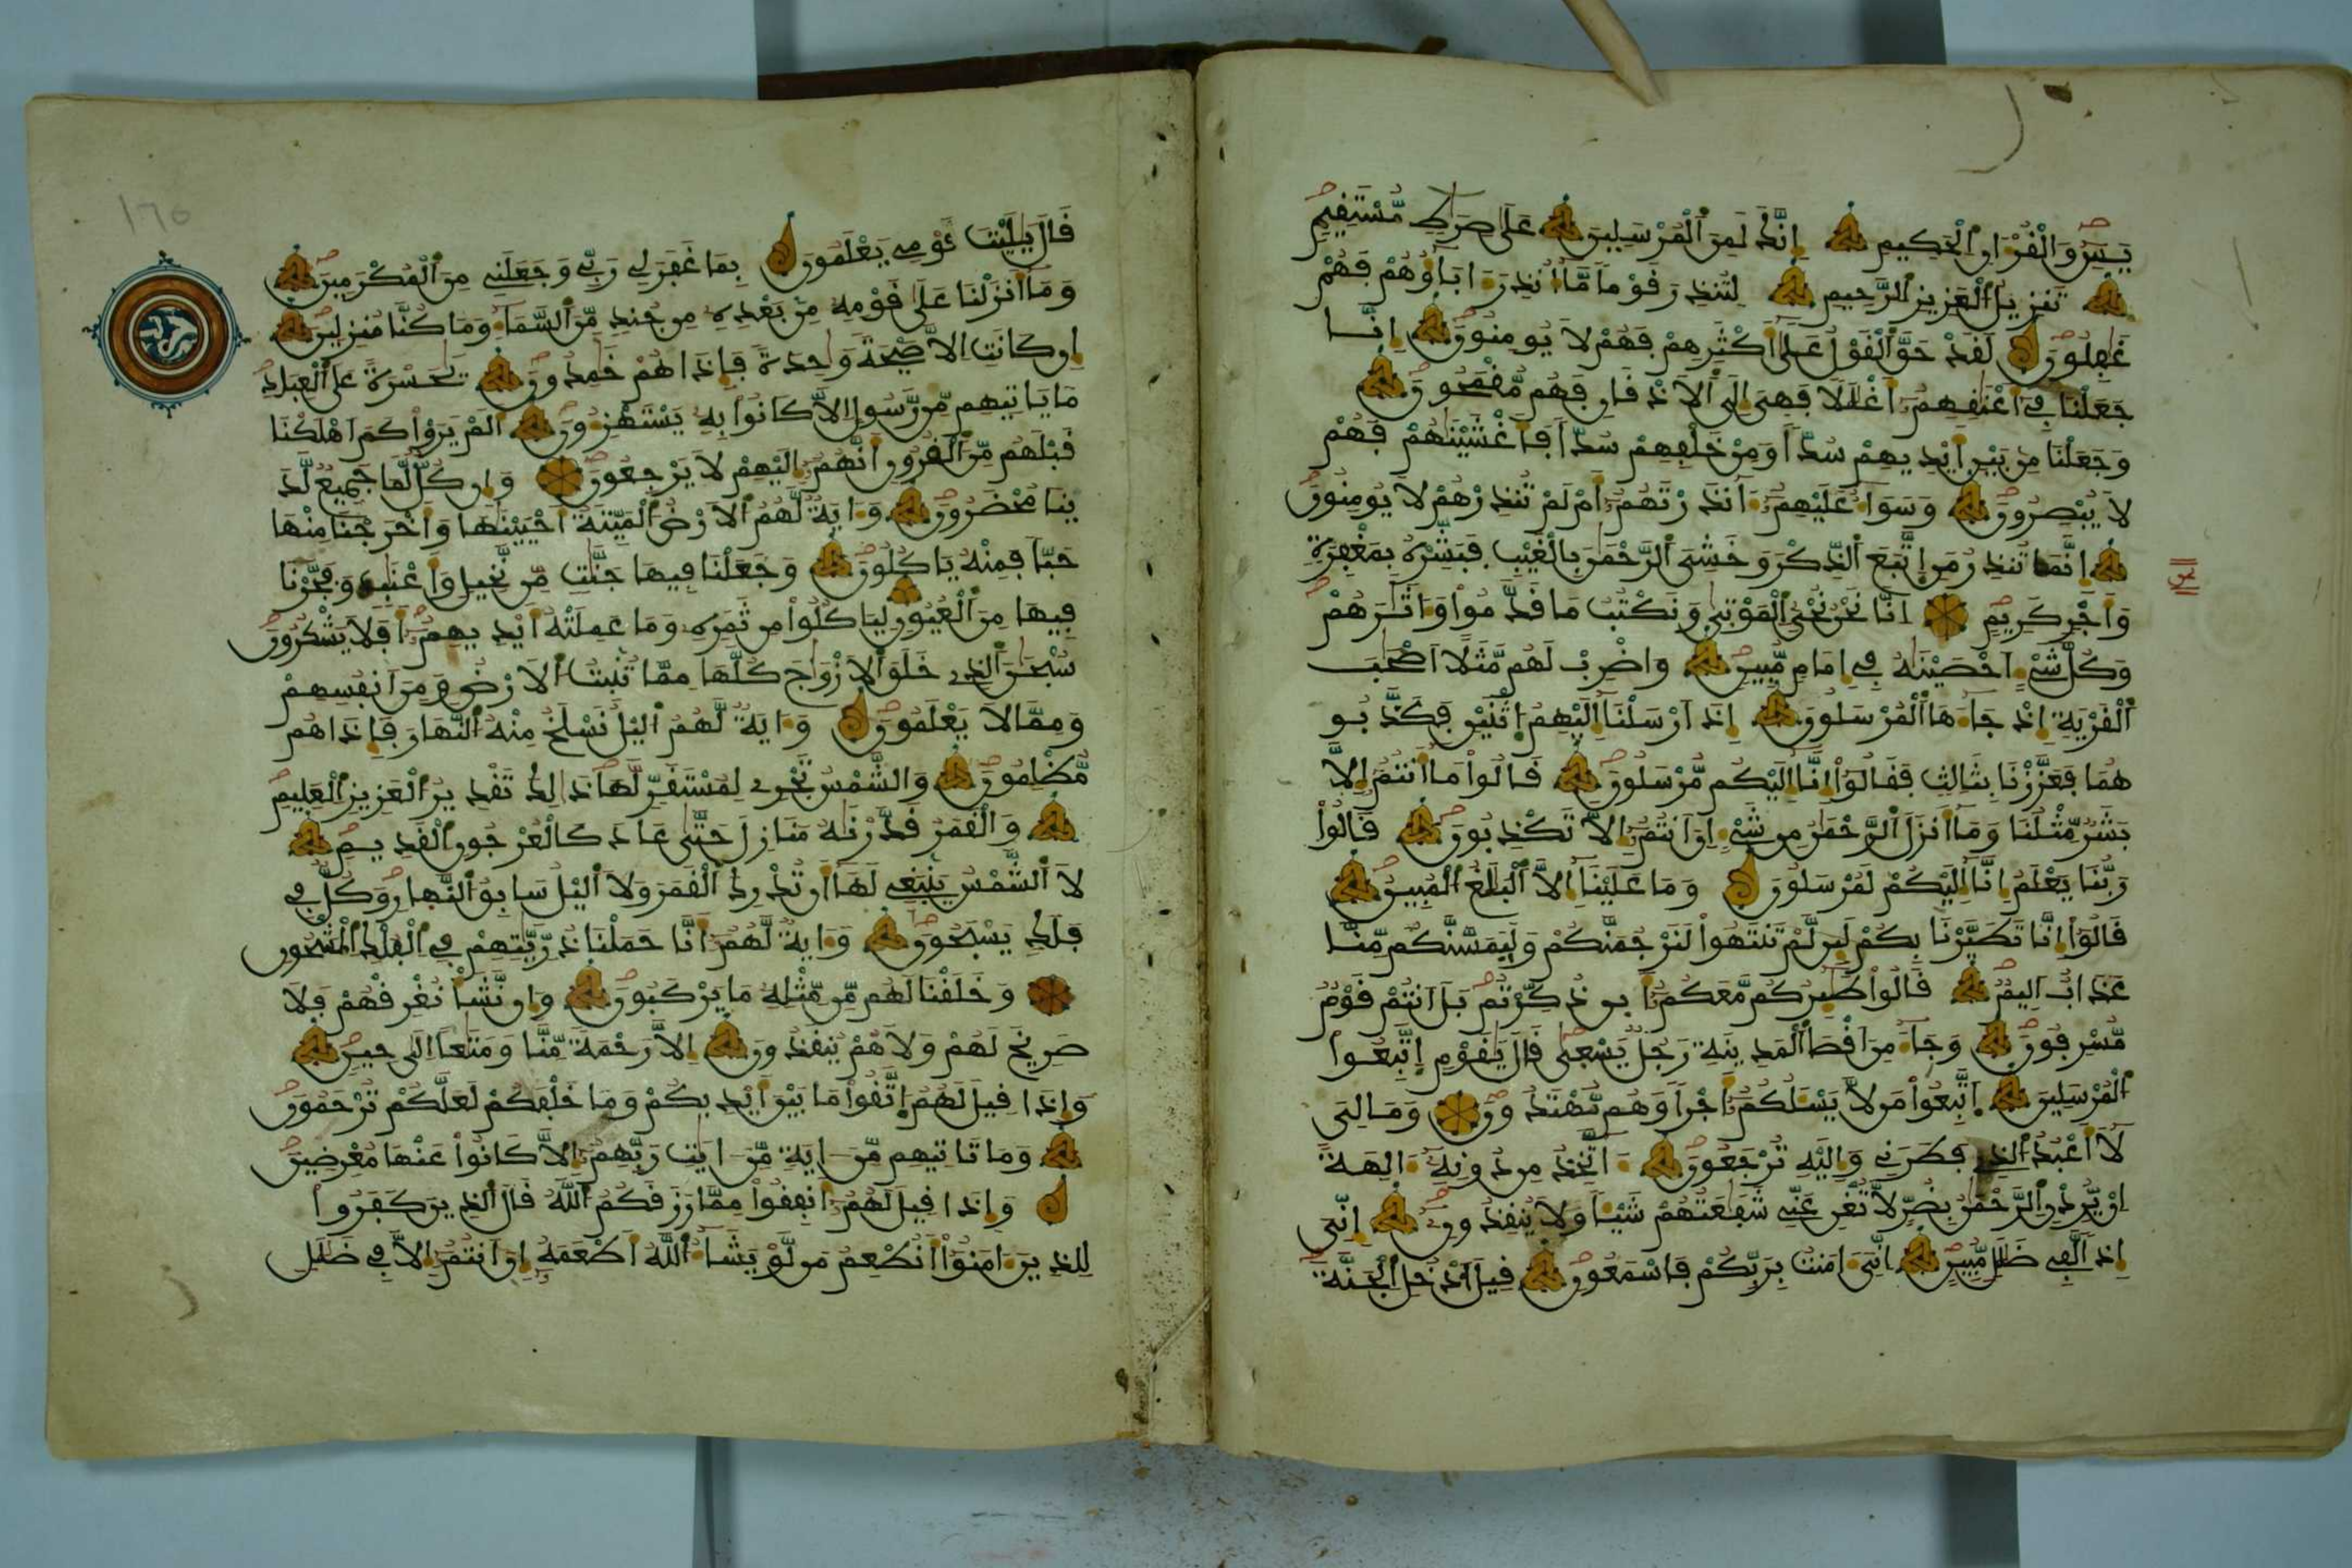 يَسِٓ وَالْقُرْءَانِ اِ۬لْحَكِيمِ اِنَّكَ لَمِنَ اَ۬لْمُرْسَلِينَ عَلَىٰ صِرَٰطٖ مُّسْتَقِيمٖ
تَنزِيلُ اُ۬لْعَزِيزِ اِ۬لرَّحِيمِ لِتُنذِرَ قَوْماٗ مَّآ أُنذِرَ ءَابَآؤُهُمْ فَهُمْ
غَٰفِلُونَ لَقَدْ حَقَّ اَ۬لْقَوْلُ عَلَىٰٓ أَكْثَرِهِمْ فَهُمْ لَا يُومِنُونَ إِنَّا
جَعَلْنَا فِےٓ أَعْنَٰقِهِمُۥٓ أَغْلَٰلاٗ فَهِىَ إِلَى اَ۬لَاذْقَانِ فَهُم مُّقْمَحُونَ
وَجَعَلْنَا مِنۢ بَيْنِ أَيْدِيهِمْ سُدّاٗ وَمِنْ خَلْفِهِمْ سُدّاٗ فَأَغْشَيْنَٰهُمْ فَهُمْ
لَا يُبْصِرُونَ وَسَوَآءٌ عَلَيْهِمُۥٓ ءَآنذَرْتَهُمُۥٓ أَمْ لَمْ تُنذِرْهُمْ لَا يُومِنُونَ
إِنَّمَا تُنذِرُ مَنِ اِ۪تَّبَعَ اَ۬لذِّكْرَ وَخَشِىَ اَ۬لرَّحْمَٰنَ بِالْغَيْبِ فَبَشِّرْهُ بِمَغْفِرَةٖ
وَأَجْرٖ كَرِيمٍ اِنَّا نَحْنُ نُحْىِ اِ۬لْمَوْتَىٰ وَنَكْتُبُ مَا قَدَّمُواْ وَءَاثَٰرَهُمْ
وَكُلَّ شَےْءٍ اَحْصَيْنَٰهُ فِےٓ إِمَامٖ مُّبِينٖ وَاضْرِبْ لَهُم مَّثَلاً اَصْحَٰبَ
اَ۬لْقَرْيَةِ إِذْ جَآءَهَا اَ۬لْمُرْسَلُونَ إِذَ اَرْسَلْنَآ إِلَيْهِمُ اُ۪ثْنَيْنِ فَكَذَّبُو
هُمَا فَعَزَّزْنَا بِثَالِثٖ فَقَالُوٓاْ إِنَّآ إِلَيْكُم مُّرْسَلُونَ قَالُواْ مَآ أَنتُمُۥٓ إِلَّا
بَشَرٞ مِّثْلُنَا وَمَآ أَنزَلَ اَ۬لرَّحْمَٰنُ مِن شَےْءٍ اِنَ اَنتُمُۥٓ إِلَّا تَكْذِبُونَ قَالُواْ
رَبُّنَا يَعْلَمُ إِنَّآ إِلَيْكُمْ لَمُرْسَلُونَ وَمَا عَلَيْنَآ إِلَّا اَ۬لْبَلَٰغُ اُ۬لْمُبِينُ
قَالُوٓاْ إِنَّا تَطَيَّرْنَا بِكُمْ لَئِن لَّمْ تَنتَهُواْ لَنَرْجُمَنَّكُمْ وَلَيَمَسَّنَّكُم مِّنَّا
عَذَابٌ اَلِيمٞ قَالُواْ طَٰٓئِرُكُم مَّعَكُمُۥٓ أَئِن ذُكِّرْتُم بَلَ اَنتُمْ قَوْمٞ
مُّسْرِفُونَ وَجَآءَ مِنَ اَقْصَا اَ۬لْمَدِينَةِ رَجُلٞ يَسْعَىٰ قَالَ يَٰقَوْمِ اِ۪تَّبِعُواْ
اُ۬لْمُرْسَلِينَ اَ۪تَّبِعُواْ مَن لَّا يَسْـَٔلُكُمُۥٓ أَجْراٗ وَهُم مُّهْتَدُونَ وَمَا لِىَ
لَآ أَعْبُدُ اُ۬لذِے فَطَرَنِے وَإِلَيْهِ تُرْجَعُونَ ءَآتَّخِذُ مِن دُونِهِۦٓ ءَالِهَةً
اِنْ يُّرِدْنِ اِ۬لرَّحْمَٰنُ بِضُرّٖ لَّا تُغْنِ عَنِّے شَفَٰعَتُهُمْ شَيْـٔاٗ وَلَا يُنقِذُونِ إِنِّىَ
إِذاٗ لَّفِے ضَلَٰلٖ مُّبِينٍ اِنِّىَ ءَامَنتُ بِرَبِّكُمْ فَاسْمَعُونِ قِيلَ اَ۟دْخُلِ اِ۬لْجَنَّةَ
١٦٥
قَالَ يَٰلَيْتَ قَوْمِے يَعْلَمُونَ بِمَا غَفَرَ لِے رَبِّے وَجَعَلَنِے مِنَ اَ۬لْمُكْرَمِينَ
وَمَآ أَنزَلْنَا عَلَىٰ قَوْمِهِۦ مِنۢ بَعْدِهِۦ مِن جُندٖ مِّنَ اَ۬لسَّمَآءِ وَمَا كُنَّا مُنزِلِينَ
إِن كَانَتِ اِلَّا صَيْحَةٗ وَٰحِدَةٗ فَإِذَا هُمْ خَٰمِدُونَ يَٰحَسْرَةً عَلَى اَ۬لْعِبَادِ
مَا يَاتِيهِم مِّن رَّسُولٍ اِلَّا كَانُواْ بِهِۦ يَسْتَهْزِءُونَ أَلَمْ يَرَوْاْ كَمَ اَهْلَكْنَا
قَبْلَهُم مِّنَ اَ۬لْقُرُونِ أَنَّهُمُۥٓ إِلَيْهِمْ لَا يَرْجِعُونَ وَإِن كُلّٞ لَّمَا جَمِيعٞ لَّدَ
يْنَا مُحْضَرُونَ وَءَايَةٞ لَّهُمُ اُ۬لَارْضُ اُ۬لْمَيِّتَةُ أَحْيَيْنَٰهَا وَأَخْرَجْنَا مِنْهَا
حَبّاٗ فَمِنْهُ يَاكُلُونَ وَجَعَلْنَا فِيهَا جَنَّٰتٖ مِّن نَّخِيلٖ وَأَعْنَٰبٖ وَفَجَّرْنَا
فِيهَا مِنَ اَ۬لْعُيُونِ لِيَاكُلُواْ مِن ثَمَرِهِۦ وَمَا عَمِلَتْهُ أَيْدِيهِمُۥٓ أَفَلَا يَشْكُرُونَ
سُبْحَٰنَ اَ۬لذِے خَلَقَ اَ۬لَازْوَٰجَ كُلَّهَا مِمَّا تُنۢبِتُ اُ۬لَارْضُ وَمِنَ اَنفُسِهِمْ
وَمِمَّا لَا يَعْلَمُونَ وَءَايَةٞ لَّهُمُ اُ۬ليْلُ نَسْلَخُ مِنْهُ اُ۬لنَّهَارَ فَإِذَا هُم
مُّظْلِمُونَ وَالشَّمْسُ تَجْرِے لِمُسْتَقَرّٖ لَّهَا ذَٰلِكَ تَقْدِيرُ اُ۬لْعَزِيزِ اِ۬لْعَلِيمِ
وَالْقَمَرُ قَدَّرْنَٰهُ مَنَازِلَ حَتَّىٰ عَادَ كَالْعُرْجُونِ اِ۬لْقَدِيمِ
لَا اَ۬لشَّمْسُ يَنۢبَغِے لَهَآ أَن تُدْرِكَ اَ۬لْقَمَرَ وَلَا اَ۬ليْلُ سَابِقُ اُ۬لنَّهَارِ وَكُلّٞ فِے
فَلَكٖ يَسْبَحُونَ وَءَايَةٞ لَّهُمُۥٓ أَنَّا حَمَلْنَا ذُرِّيَّٰتِهِمْ فِے اِ۬لْفُلْكِ اِ۬لْمَشْحُونِ
وَخَلَقْنَا لَهُم مِّن مِّثْلِهِۦ مَا يَرْكَبُونَ وَإِن نَّشَأْ نُغْرِقْهُمْ فَلَا
صَرِيخَ لَهُمْ وَلَا هُمْ يُنقَذُونَ إِلَّا رَحْمَةٗ مِّنَّا وَمَتَٰعاً اِلَىٰ حِينٖ
وَإِذَا قِيلَ لَهُمُ اُ۪تَّقُواْ مَا بَيْنَ أَيْدِيكُمْ وَمَا خَلْفَكُمْ لَعَلَّكُمْ تُرْحَمُونَ
وَمَا تَاتِيهِم مِّنَ ايَةٖ مِّنَ ايَٰتِ رَبِّهِمُۥٓ إِلَّا كَانُواْ عَنْهَا مُعْرِضِينَ
وَإِذَا قِيلَ لَهُمُۥٓ أَنفِقُواْ مِمَّا رَزَقَكُمُ اُ۬للَّهُ قَالَ اَ۬لذِينَ كَفَرُواْ
لِلذِينَ ءَامَنُوٓاْ أَنُطْعِمُ مَن لَّوْ يَشَآءُ اُ۬للَّهُ أَطْعَمَهُۥٓ إِنَ اَنتُمُۥٓ إِلَّا فِے ضَلَٰلٖ